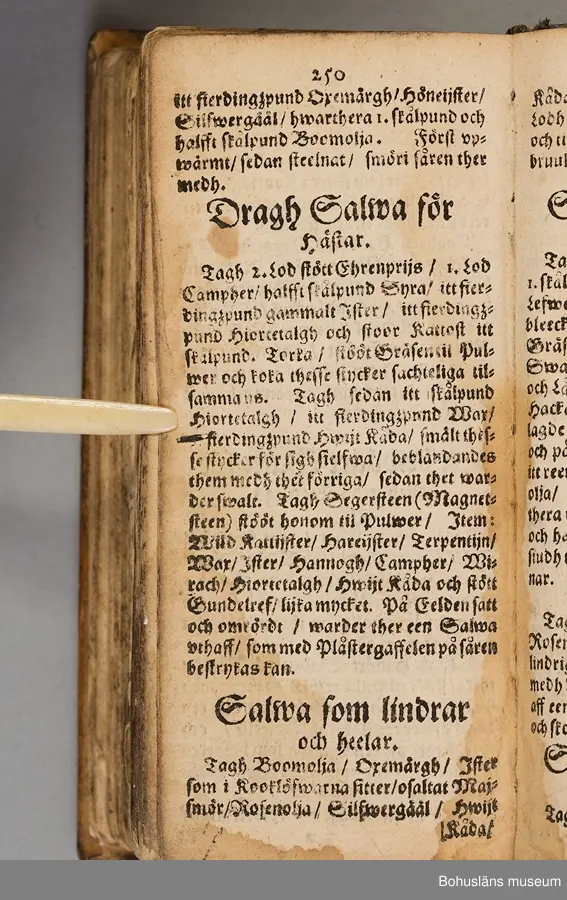 250
itt fierdingzpund Oxemärgh/Höneijster/
Silfwergåål/ hwarthera 1. skålpund och
halfft skålpund Boomolja. Först vp-
wärmt/ sedan steelnat/ smöri såren ther
medh.
Dragh Salwa för
Hästar.
Tagh 2. Lod stött Ehrenprijs / 1. Lod
Campher/ halfft skålpund Syra/ itt fier-
dingzpund gammalt Ister/ itt fierdingz-
pund Hiortetalgh och stoor Kattost itt
skålpund. Torka / stööt Gräsen til Pul-
wer och koka thesse stycker sachteliga til-
sammans. Tagh sedan itt skålpund
Hiortetalgh / itt fierdingzpund Wax/
fierdingzpund Hwijt Kåda/ smält thes-
se stycker för sigh sielfwa/ beblandandes
them medh thet förriga/ sedan thet war-
der swalt. Tagh Segersteen (Magnet-
steen) stööt honom til Pulwer/ Item:
Wild Kattijster/ Hareijster/ Terpentijn/
Wax/Ister/ Hannogh/Campher/ Wi-
rach/Hiortetalgh/Hwijt Kåda och stött
Gundelref/ lijka mycket. På Eelden satt
och omrördt / warder ther een Salwa
vthaff/ som med Plåstergaffelen på såren
bestrykas kan.
Salwa som lindrar
och heelar.
Tagh Boomolja / Oxemärgh/ Ister
som i Kooklöfwarna sitter/osaltat Maj-
smör/Rosenolja/ Silfwergåål/ Hwijt
Kåda/
Kåda
Lodh
och ti
bruuk
S
Ta
1. skål
Lefwe
bleeck
Gräs
Swa
och Lå
Hacka
lagde
och på
itt reen
olja/
thera
och ha
siudh
nar.
Tag
Rosen
lindrig
medh
aff een
och sko
S
Tag
Bohusläns museum